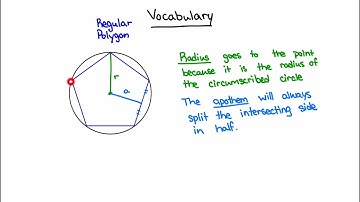 Vocabulary
Regular
Polygon
r
a
Radius goes to the point
because it is the radius of
the circumscribed circle
The apothem will always
split the intersecting side
in half.